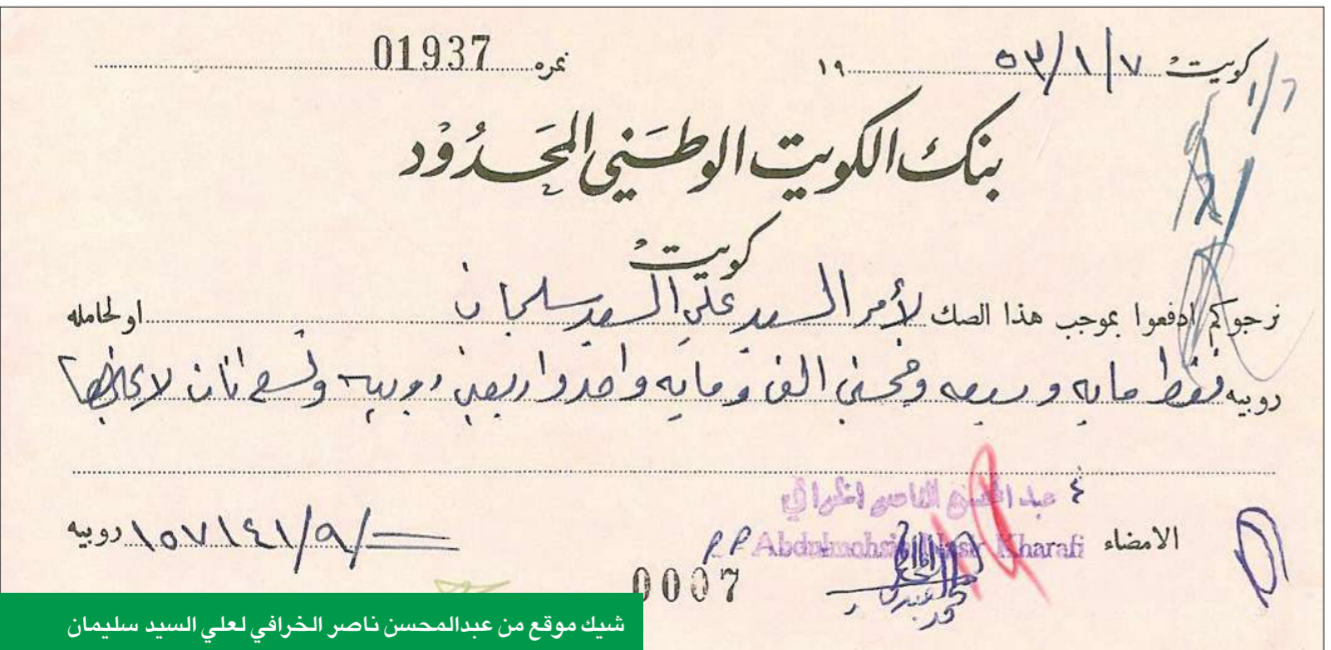 كويت ٥٣/١/٧ ١٩
نمره 01937
بنك الكويت الوطني المحدود
كويت
نرجوكم ادفعوا بموجب هذا الصك لأمر السيد علي السيد سليمان او لحامله
روبيه فقط مايه وسبعه وخمسين الف ومايه وواحد واربعين روبيه وتسع انات لاغيرها
عبد المحسن الناصر الخرافي
الامضاء P.P Abdulmohsin Nasr Kharafi
١٥٧١٤١/٩/= روبيه
0007
شيك موقع من عبدالمحسن ناصر الخرافي لعلي السيد سليمان